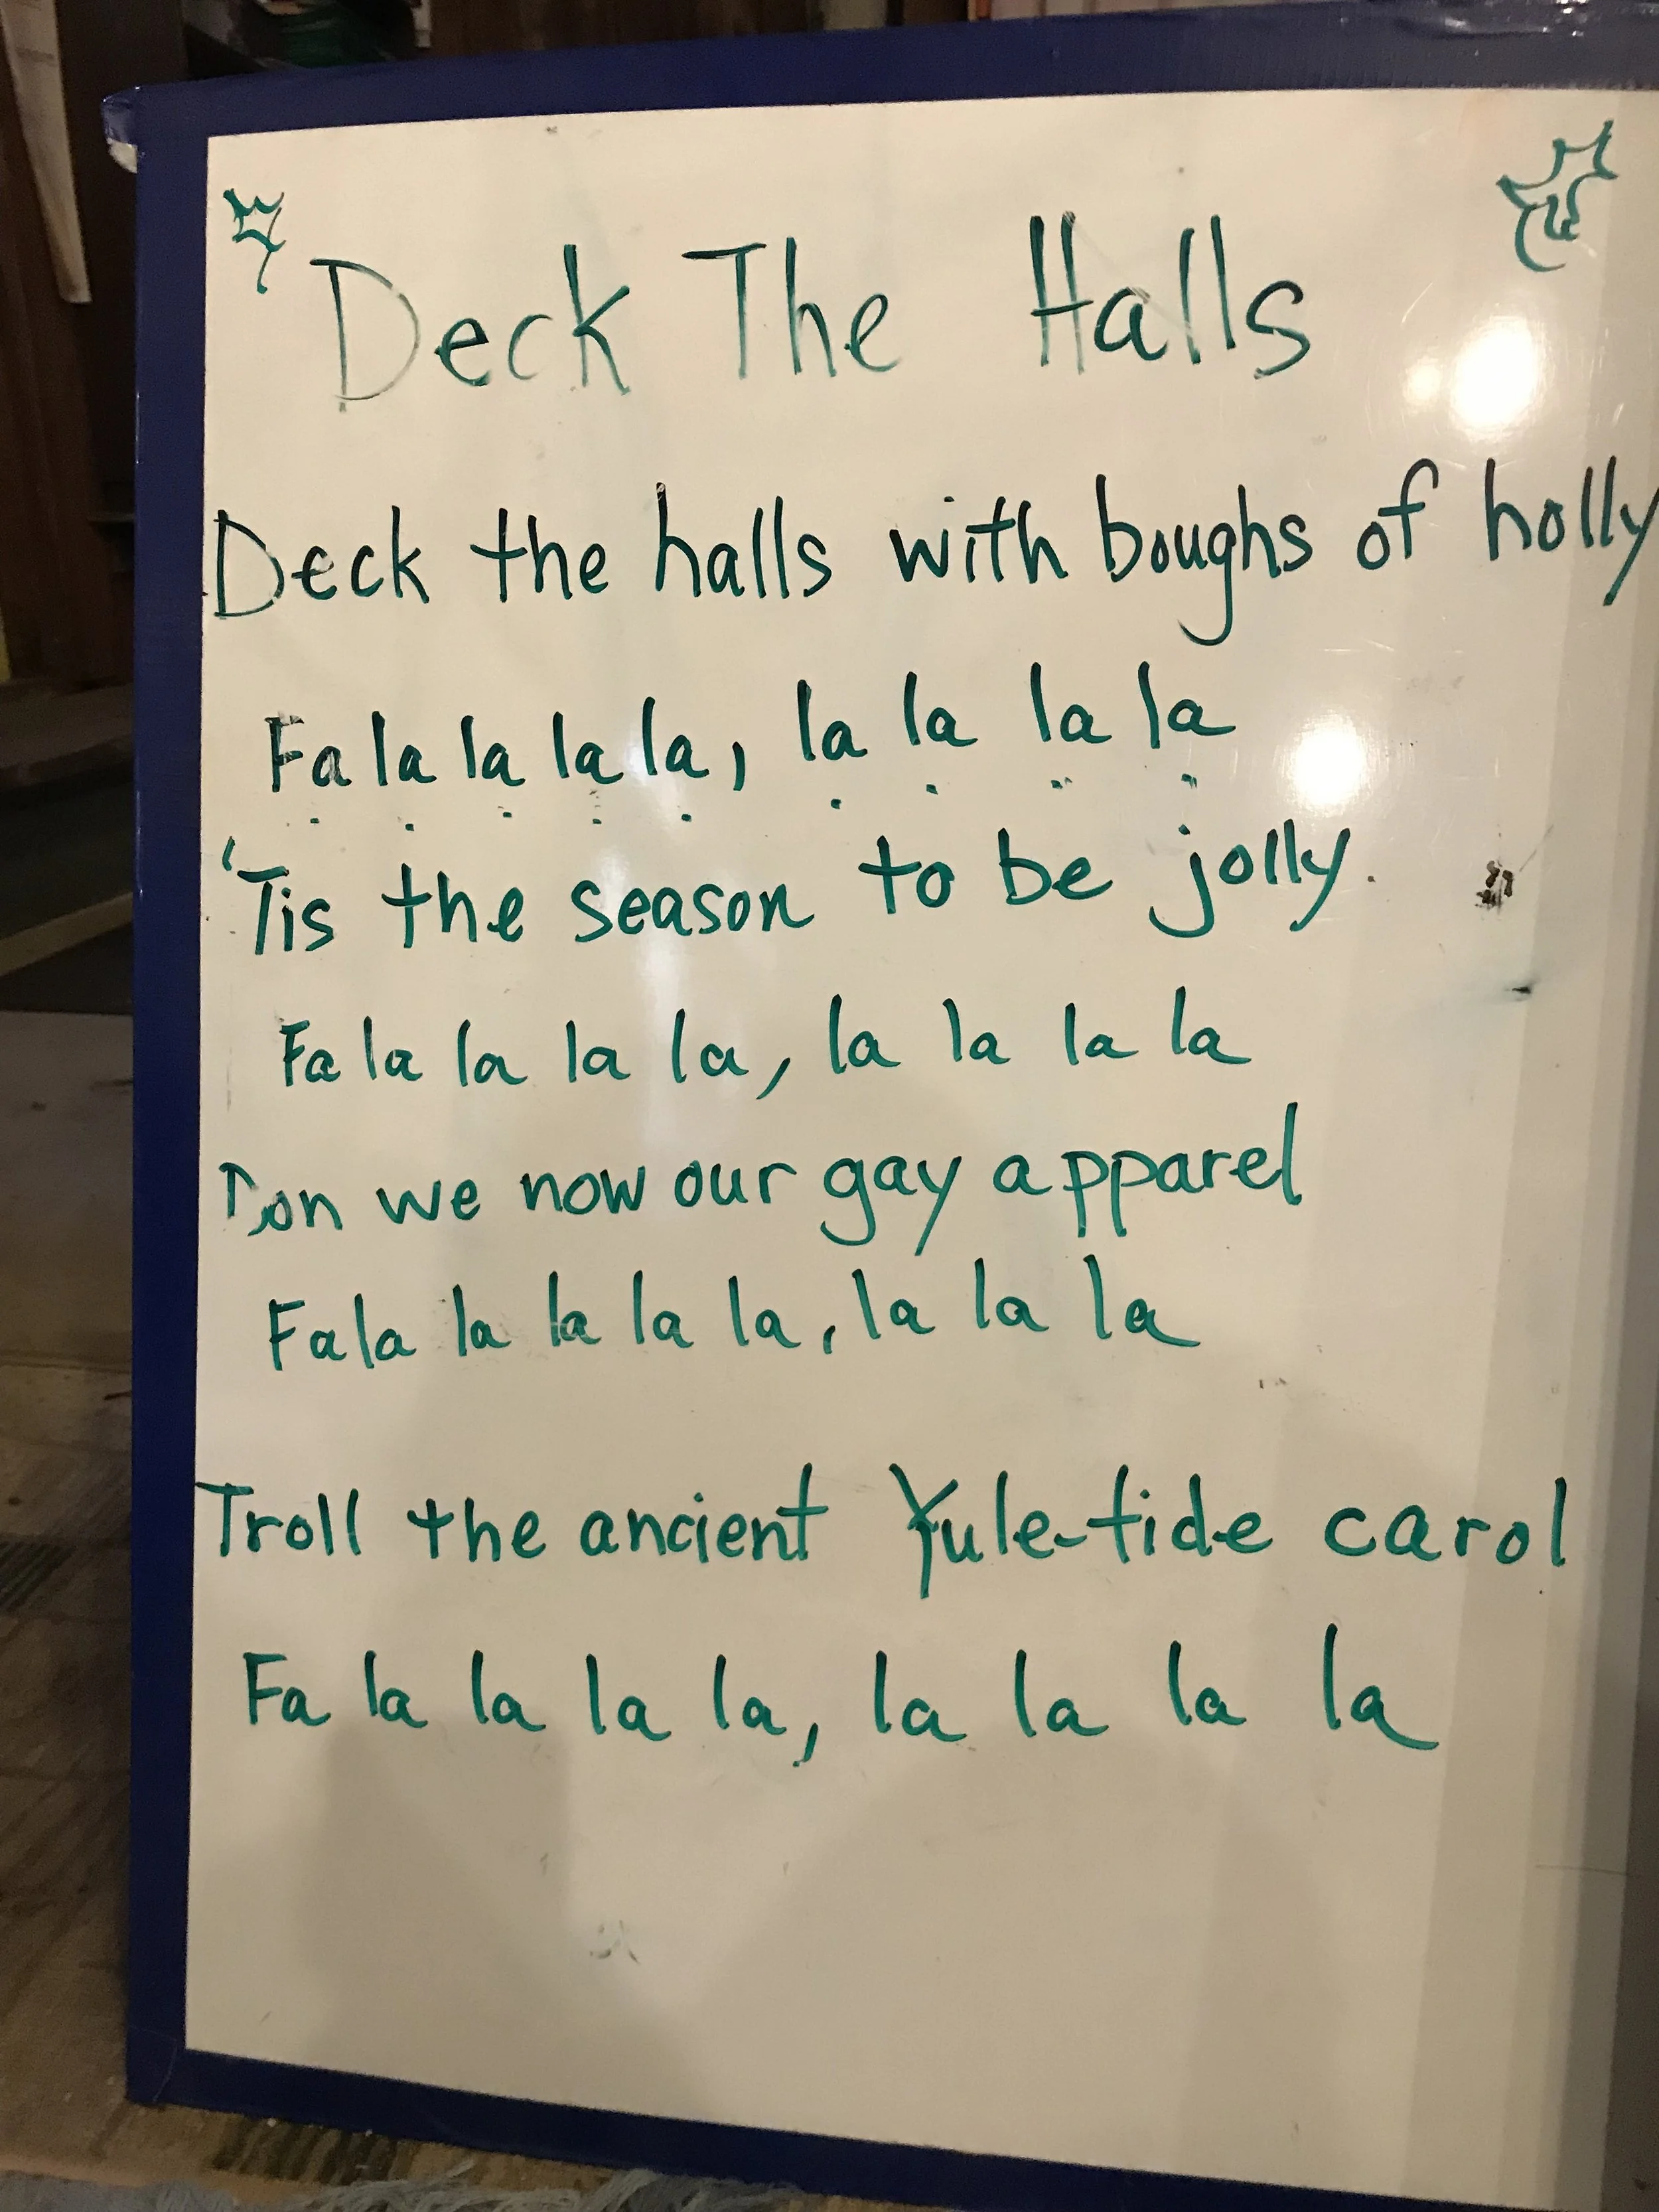 Deck The Halls
Deck the halls with boughs of holly
Fa la la la la, la la la la
'Tis the season to be jolly.
Fa la la la la, la la la la
Don we now our gay apparel
Fa la la la la la, la la la
Troll the ancient Yule-tide carol
Fa la la la la, la la la la